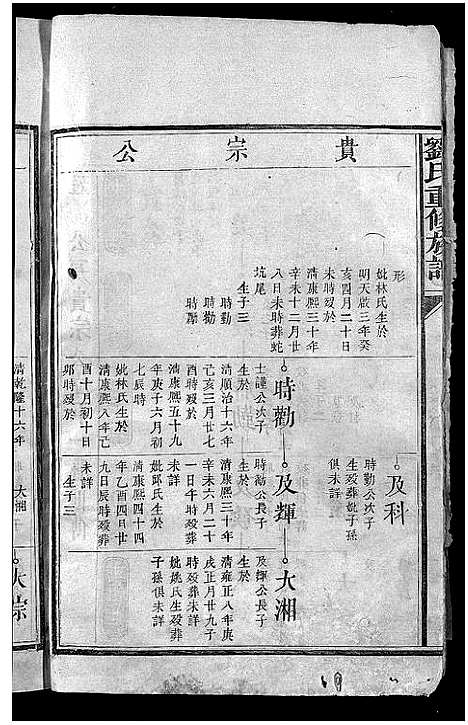 劉氏重修族譜
貴宗公
形
妣林氏生於
明天啟三年癸
亥四月二十日
未時歿於
清康熙三十年
辛未十二月廿
八日未時葬蛇
坑尾
生子三
時勤
時勸
時勵
及科
時勤公次子
生歿葬妣子孫
俱未詳
時勸
士謹公次子
生於
清順治十六年
己亥三月廿七
酉時歿於
清康熙五十九
年庚子六月初
七辰時
妣林氏生於
清康熙八年己
酉十月初十日
卯時歿於
及輝
時勸公長子
生於
清康熙三十年
辛未六月二十
一日午時歿葬
未詳
妣邱氏生於
清康熙四十四
年乙酉四月廿
九日辰時歿葬
未詳
生子三
大湘
及輝公長子
生於
清雍正八年庚
戌正月廿九子
時歿葬未詳
妣姚氏生歿葬
子孫俱未詳
清乾隆十六年
大湘
大宗